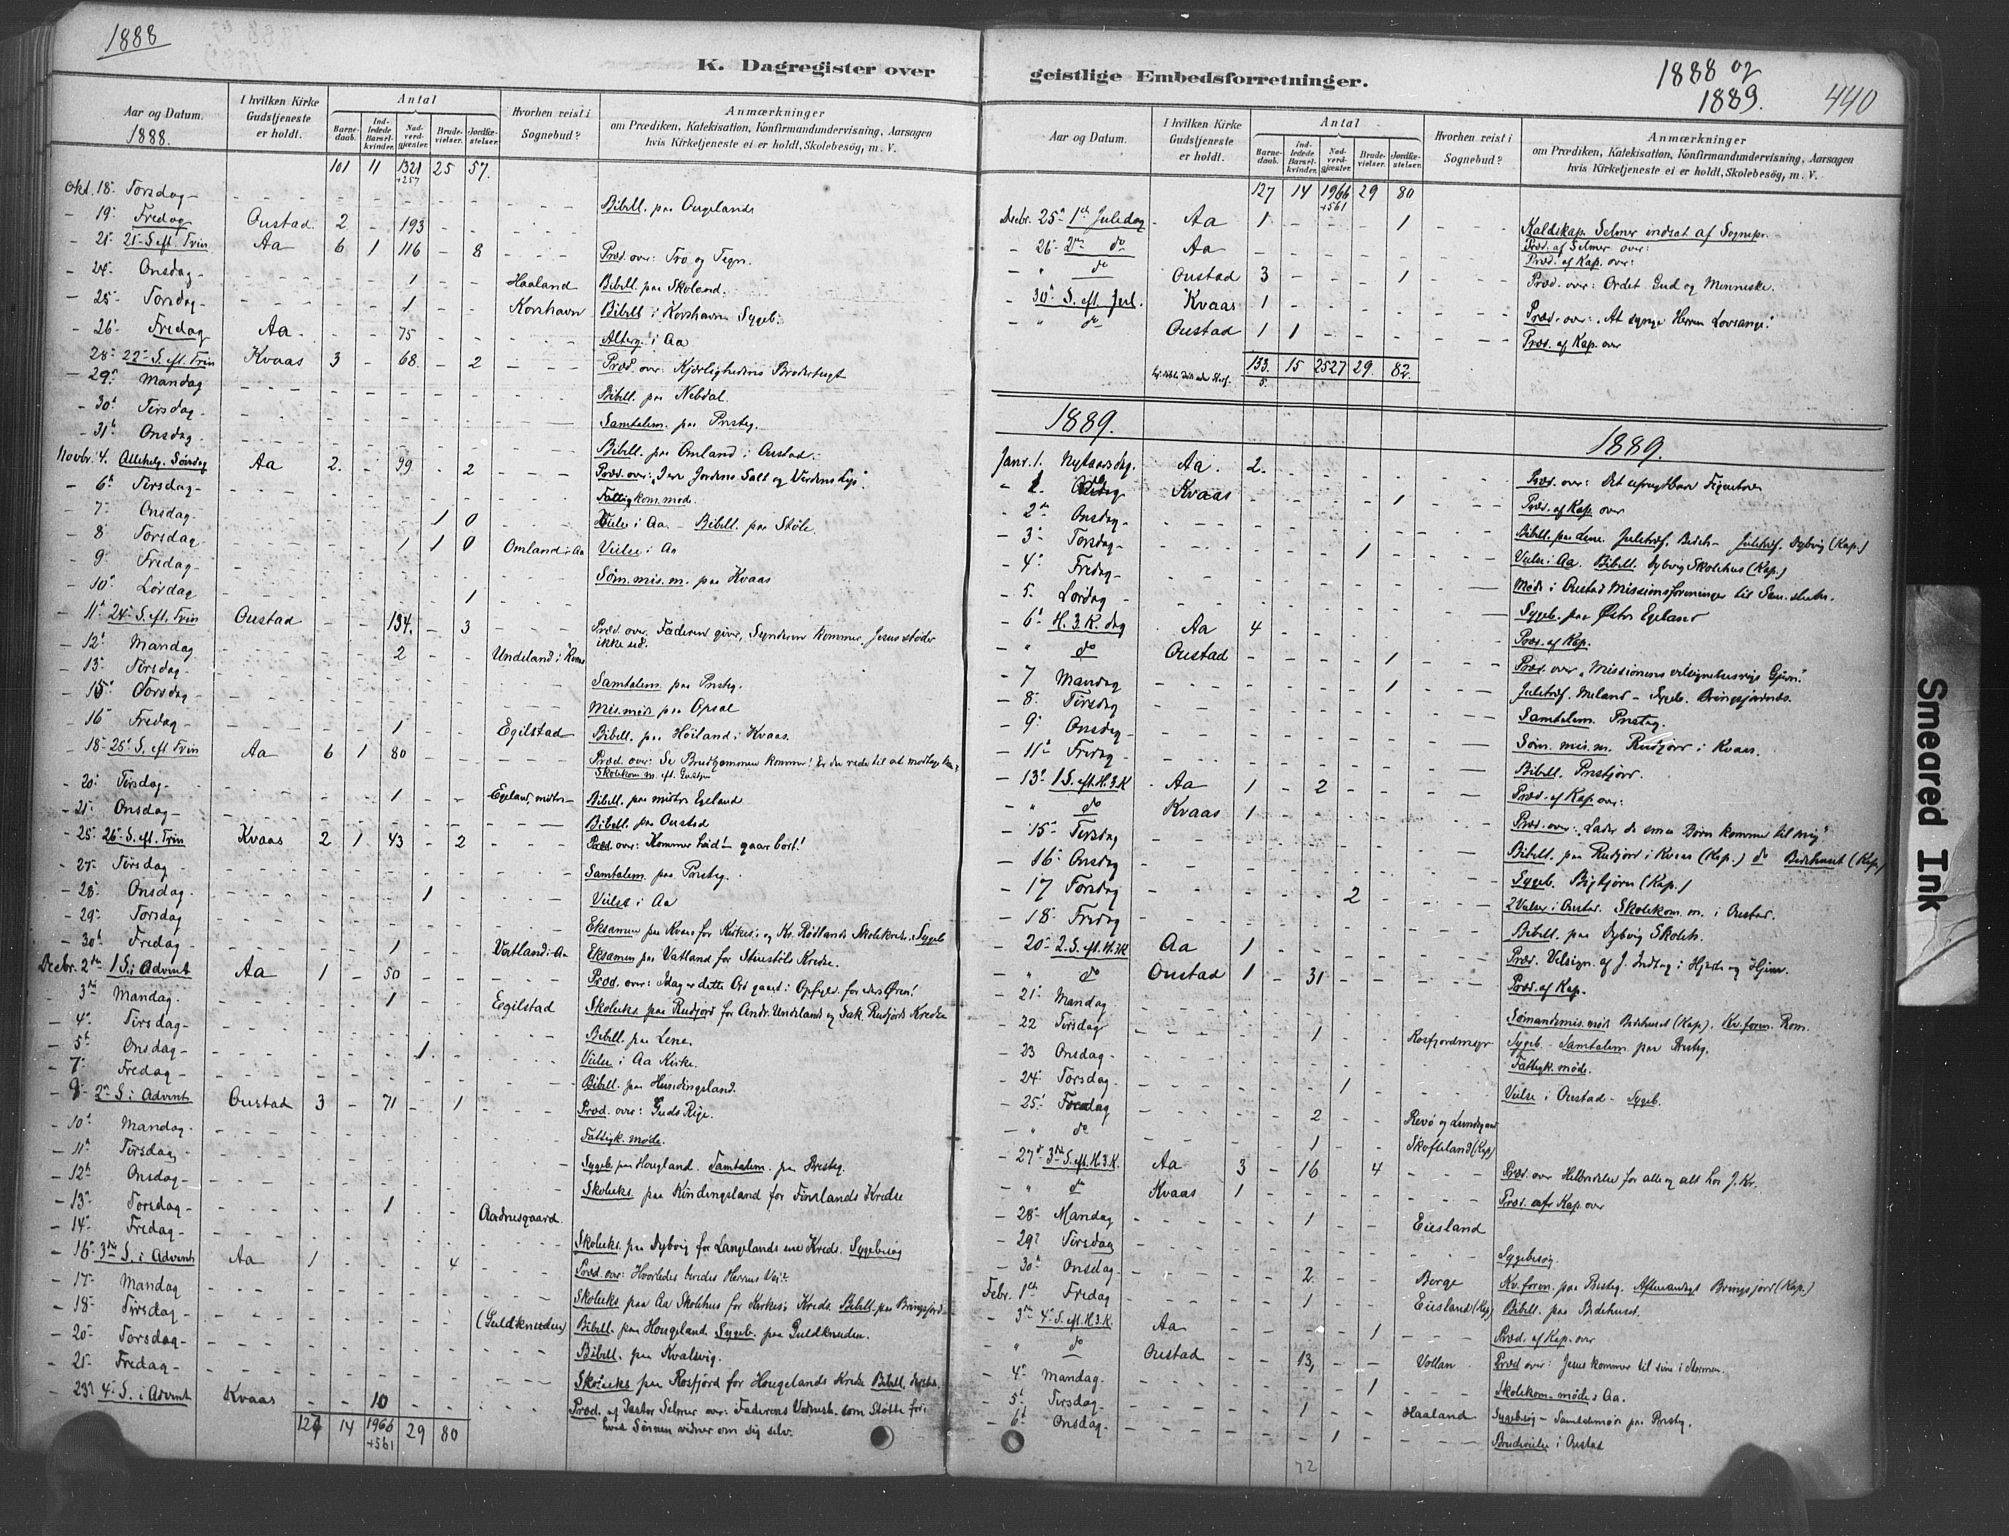 1888
K. Dagregister over
Aar og Datum.
1888.
I hvilken Kirke Gudstjeneste er holdt.
Antal
Barne-daab.
Ind-ledede Barsel-kvinder.
Nad-verd-gjæster.
Brude-vielser.
Jordfæ-stelser.
Hvorhen reist i Sognebud?
Anmærkninger
om Prædiken, Katekisation, Konfirmandundervisning, Aarsagen
hvis Kirketjeneste ei er holdt, Skolebesøg, m. V.
101 11 1321 25 57.
+257
Okt. 18 Torsdag - Bibell. paa Ougelands
- 19 Fredag Oustad 2 - 193 -
- 21 21 S. eft. Trin Aa 6 1 116 - 8 Præd. over: Tro og Tegn.
- 24 Onsdag - 1 Haaland Bibell. paa Skoland.
- 25 Torsdag - 1 Korshavn Bibell. i Korshavn Sygeb.
- 26 Fredag Aa - 75 - Alterg. i Aa
- 28 22 S. eft. Trin Kvaas 3 - 68 - 2 Præd. over: Kjærlighedens
- 29 Mandag Bibell. paa Nebdal.
- 30 Tirsdag - Samtalem. paa Prsteg.
- 31 Onsdag - Bibell. paa Omland i Oustad.
Novbr. 4. Allehelg. Søndag Aa 2. - 99 - 2 Præd. over: Jere Jordens Salt og Verdens Lys.
- 6 Tirsdag - Fattigkom. møde.
- 7 Onsdag. 1 0 Vielse i Aa - Bibell. paa Støle.
- 8 Torsdag 1 1 0 Omland i Aa Vielse i Aa
- 9 Fredag - Søm. mis. m. paa Kvaas
- 10 Lørdag 1
- 11 24 S. eft. Trin Oustad - 134. - 3 Præd. over. Faderen giver, Synderen kommer, Jesus støder
ikke ud.
- 12 Mandag 2 Undeland i Kvaas
- 13 Tirsdag - Samtalem. paa Prsteg.
- 15 Torsdag Mis. mød paa Opsal
- 16 Fredag - 1 Egilstad Bibell. paa Høiland i Kvaas.
- 18 25 S. eft Trin Aa 6 1 80 Præd. over: Se Brudgommen kommer! Er du rede til at modtage
Skolekom. m. eft. Gudstjen
- 20 Tirsdag - 1 Egeland, midtre Bibell. paa midtre Egeland
- 21 Onsdag - Bibell. paa Oustad
- 25 26 S. eft. Trin Kvaas 2 1 43 - 2 Præd. over: Kommer hid! - gaar bort!
- 27 Tirsdag - Samtalem. paa Prsteg.
- 28 Onsdag 1 Vielse i Aa
- 29 Torsdag Eksamen paa Kvaas for Kirkes og Kv. Rødlands Skolekreds. Sygeb
- 30 Fredag 1 Vatland i Aa Eksamen paa Vatland for Kreds.
Decbr. 2den 1 S. i Advent Aa 1 - 50 Præd. over: Idag er dette Ord gaaet i Opfyld. for
- 3die Mandag. 1 Egilstad Skoleeks paa Rudjord for Andr. Undelands og Jak. Rudjords Kredse
- 4 Tirsdag - Bibell. paa Lene.
- 5 Onsdag - 1. Vielse i Aa Kirke.
- 7 Fredag - Bibell. paa Husdingsland.
- 9 2 S. i Advent Oustad 3 - 71 - 1 Præd. over: Guds Rige.
- 10 Mandag - Fattigk. møde.
- 11 Tirsdag - Sygeb. paa Hougland. Samtalem. paa Prsteg.
- 12 Onsdag - Skoleeks paa Kindingsland for Kredse
- 13 Torsdag - 1 Aadnesgaard.
- 14 Fredag. Skoleeks. paa Dybvig for Langelands ene Kreds. Sygebesøg
- 16 3die S. i Advent Aa 1 4 Præd. over: Hvorledes beredes Herrens Vei?
- 17 Mandag Skoleeks paa Aa Skolehus for Kirkes Kreds. Bibell. paa Bringsjord
- 18 Tirsdag - (Guldknuden) Bibell. paa Hougeland Sygeb. paa Guldknuden.
- 20 Torsdag - Bibell. paa Kvalsvig.
- 21 Fredag - Skoleeks paa Rosfjord for Hougelands Kreds Bibell.
- 23 4 S. i Advent Kvaas - - 10 Præd. af Pastor Selmer over: Faderens som Støtte for
hvad Sønnen vidner om sig selv.
127 14 1966 29 80
+561
geistlige Embedsforretninger.
1888 og
1889.
440
Aar og Datum.
I hvilken Kirke Gudstjeneste er holdt.
Antal
Barne-daab.
Ind-ledede Barsel-kvinder.
Nad-verd-gjæster.
Brude-vielser.
Jordfæ-stelser.
Hvorhen reist i Sognebud?
Anmærkninger
om Prædiken, Katekisation, Konfirmandundervisning, Aarsagen
hvis Kirketjeneste ei er holdt, Skolebesøg, m. V.
127 14 1966 29 80
+561
Decbr. 25 1ste Juledag - Aa 1 1 Kaldskap. Selmer indsat af Sognepr.
Præd. af Selmer over:
- 26 2den do Aa Præd. af Kap. over:
- " do Oustad 3 1 Præd. over: Ordet Gud og Menneske.
- 30 S. eft. Jul. Kvaas 1 Præd. over: At synge Herren Lovsange!
- " do Oustad 1 1 Præd. af Kap. over
133. 15 2527 29. 82.
5.
1889.
1889.
Janr. 1. Nytaarsdag. Aa. 2. Præd. over: Det ufrugtbare Figentræ
- 1. do Kvaas 1 Præd. af Kap. over
- 2den Onsdag - Bibell. paa Lene Juletræf. Bedeh - Juletræf. Dybvig (Kap.)
- 3 Torsdag - 1 Vielse i Aa. Bibell. Dybvig Skolehus (Kap.)
- 4 Fredag - Møde i Oustad Missionsforeninger
- 5. Lørdag - Sygeb. paa Østre Egeland
- 6 H. 3. K. dag Aa 4 Præd. af Kap.
- " do Oustad 1 Præd. over "Missionens velsignelsesrige Gjern."
- 7 Mandag 1 Juletræf. Meland - Sygeb. Bringsjordnes.
- 8 Tirsdag Samtalem. Prsteg.
- 9 Onsdag - Søm. mis. m. Rudjord i Kvaas.
- 11 Fredag - Bibell. Prestjord.
- 13 1 S. eft. H. 3. K Aa 1 - 2 Præd. af Kap. over:
- " do Kvaas 1 Præd. over: "Lader de smaa Børn komme til mig"
- 15 Tirsdag Bibell. paa Rudjord i Kvaas (Kap.) do Bedehuset (Kap.)
- 16 Onsdag Sygeb. (Kap.)
- 17 Torsdag 2 2 Vielser i Oustad. Skolekom. m. i Oustad.
- 18 Fredag Bibell. paa Dybvig Skoleh.
- 20 2. S. eft. H. 3. K Aa 1 Præd. Velsign. af J. Indtog i Hjerte og Hjem.
- " do Oustad 1 - 31 Præd. af Kap.
- 21 Mandag Sømandsmis. møde Bedehuset (Kap). Kv. foren. Rom.
- 22 Tirsdag 1 Rosfjordmyr Sygeb. - Samtalem. paa Prsteg.
- 23 Onsdag - Fattigk. møde.
- 24 Torsdag - 1 Vielse i Oustad - Sygeb.
- 25 Fredag 2 Revø og
- " do 1 Skofteland (Kap)
- 27 3die S. eft. H. 3. K. Aa 3 - 16 - 4 Præd. over Helbredelse for alle og alt hos J. Kr.
- " do Kvaas 1 Præd. af Kap. over
- 28 Mandag 1 Eiesland
- 29 Tirsdag Sygebesøg
- 30 Onsdag 2 Berge Kv. foren. paa Prsteg. Bringsjord (Kap.)
Febr. 1ste Fredag 1 Eiesland (Kap) Bibell. paa Bedehuset.
- 3die 4 S. eft. H. 3. K. Aa 1 Præd. af Kap. over
- " do Oustad 13, Vollan Præd over: Jesus kommer til sine i Stormen.
- 4 Mandag. 1 Skolekom-møde i Aa.
- 5 Tirsdag - 1 Haaland Sygebesøg - Samtalemøde paa Prsteg.
- 6 Onsdag - 1 Brudevielse i Oustad
72
Smeared Ink